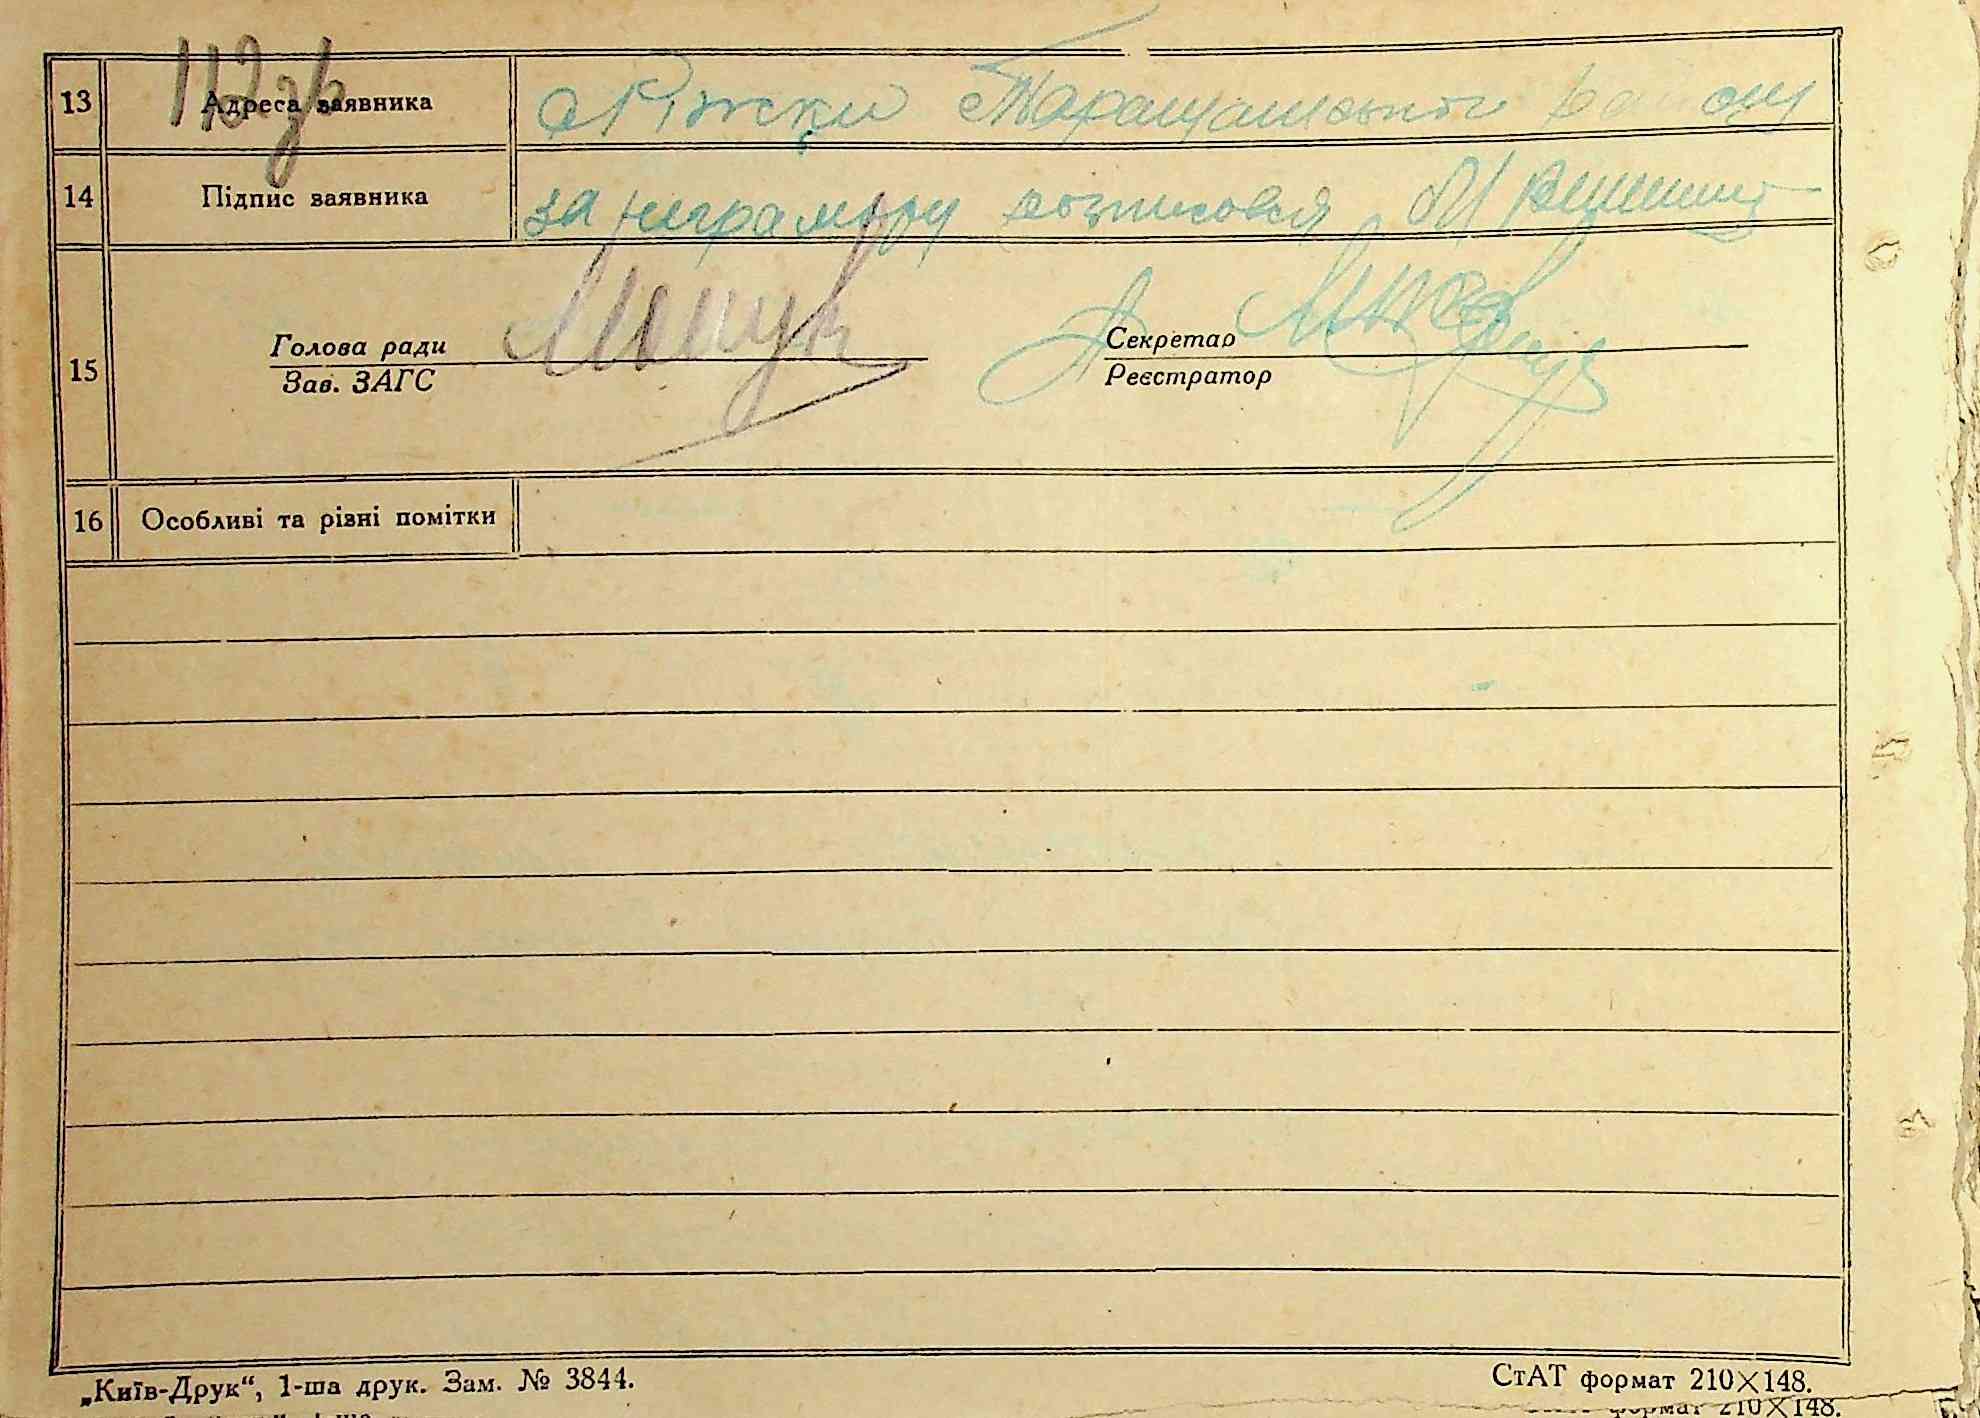 112зв
13 Адреса заявника с Ріжки Таращанського району
14 Підпис заявника за неграмотну розписався
15 Голова ради Секретар
Зав. ЗАГС Реєстратор
16 Особливі та різні помітки
„Київ-Друк“, 1-ша друк. Зам. № 3844. СтАТ формат 210×148.
формат 210×148.